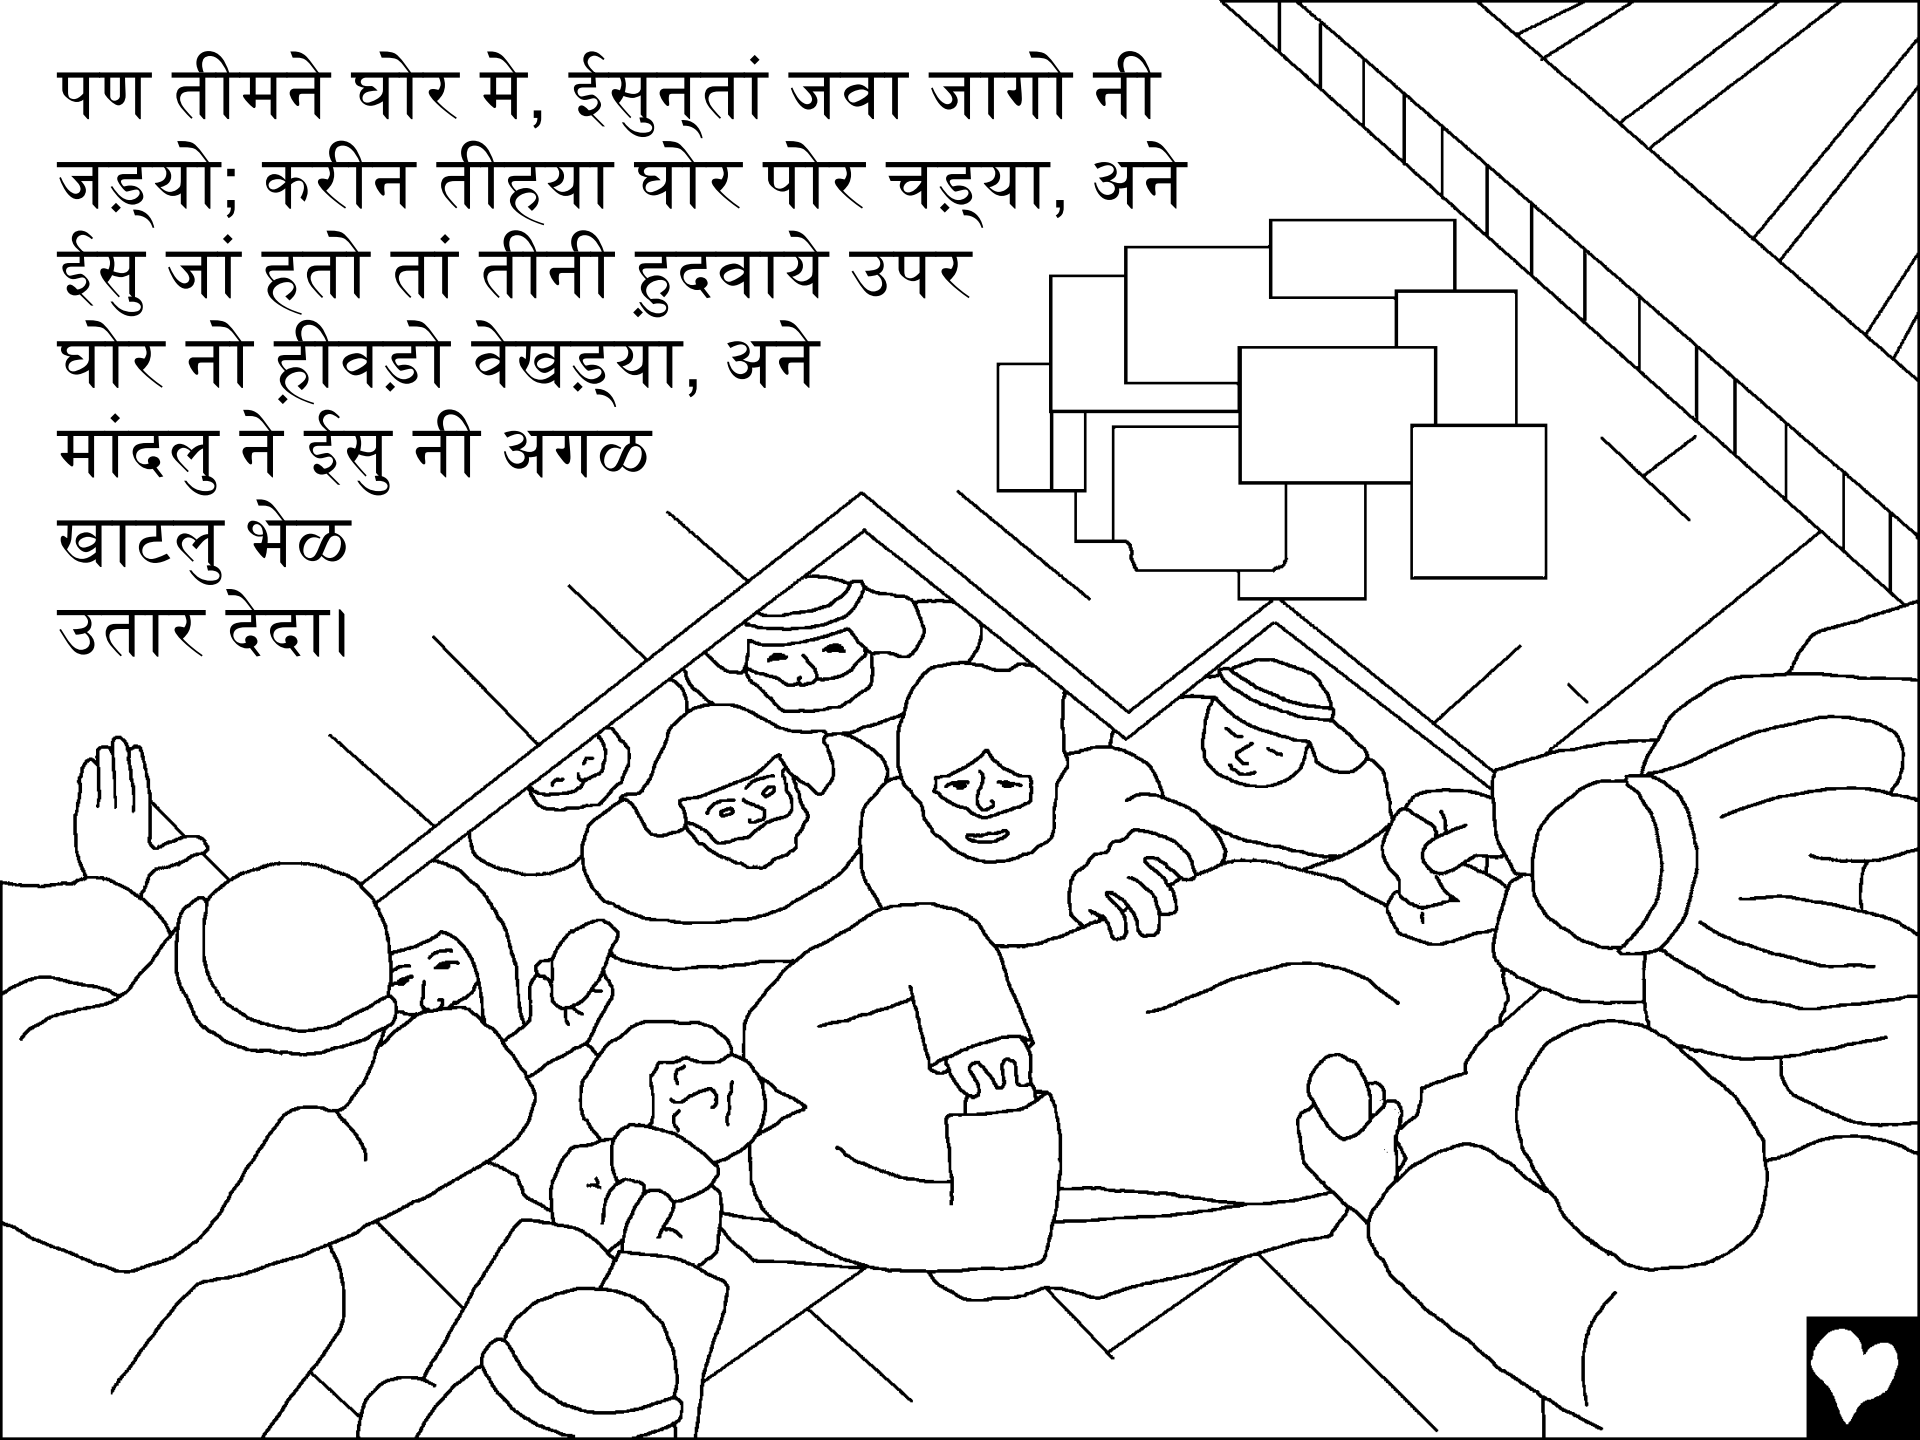 पण तीमने घोर मे, ईसुन्तां जवा जागो नी
जड़्यो; करीन तीह्या घोर पोर चड़्या, अने
ईसु जां हतो तां तीनी ह़ुदवाये उपर
घोर नो ह़ीवड़ो वेखड़्या, अने
मांदलु ने ईसु नी अगळ
खाटलु भेळ
उतार देदा।